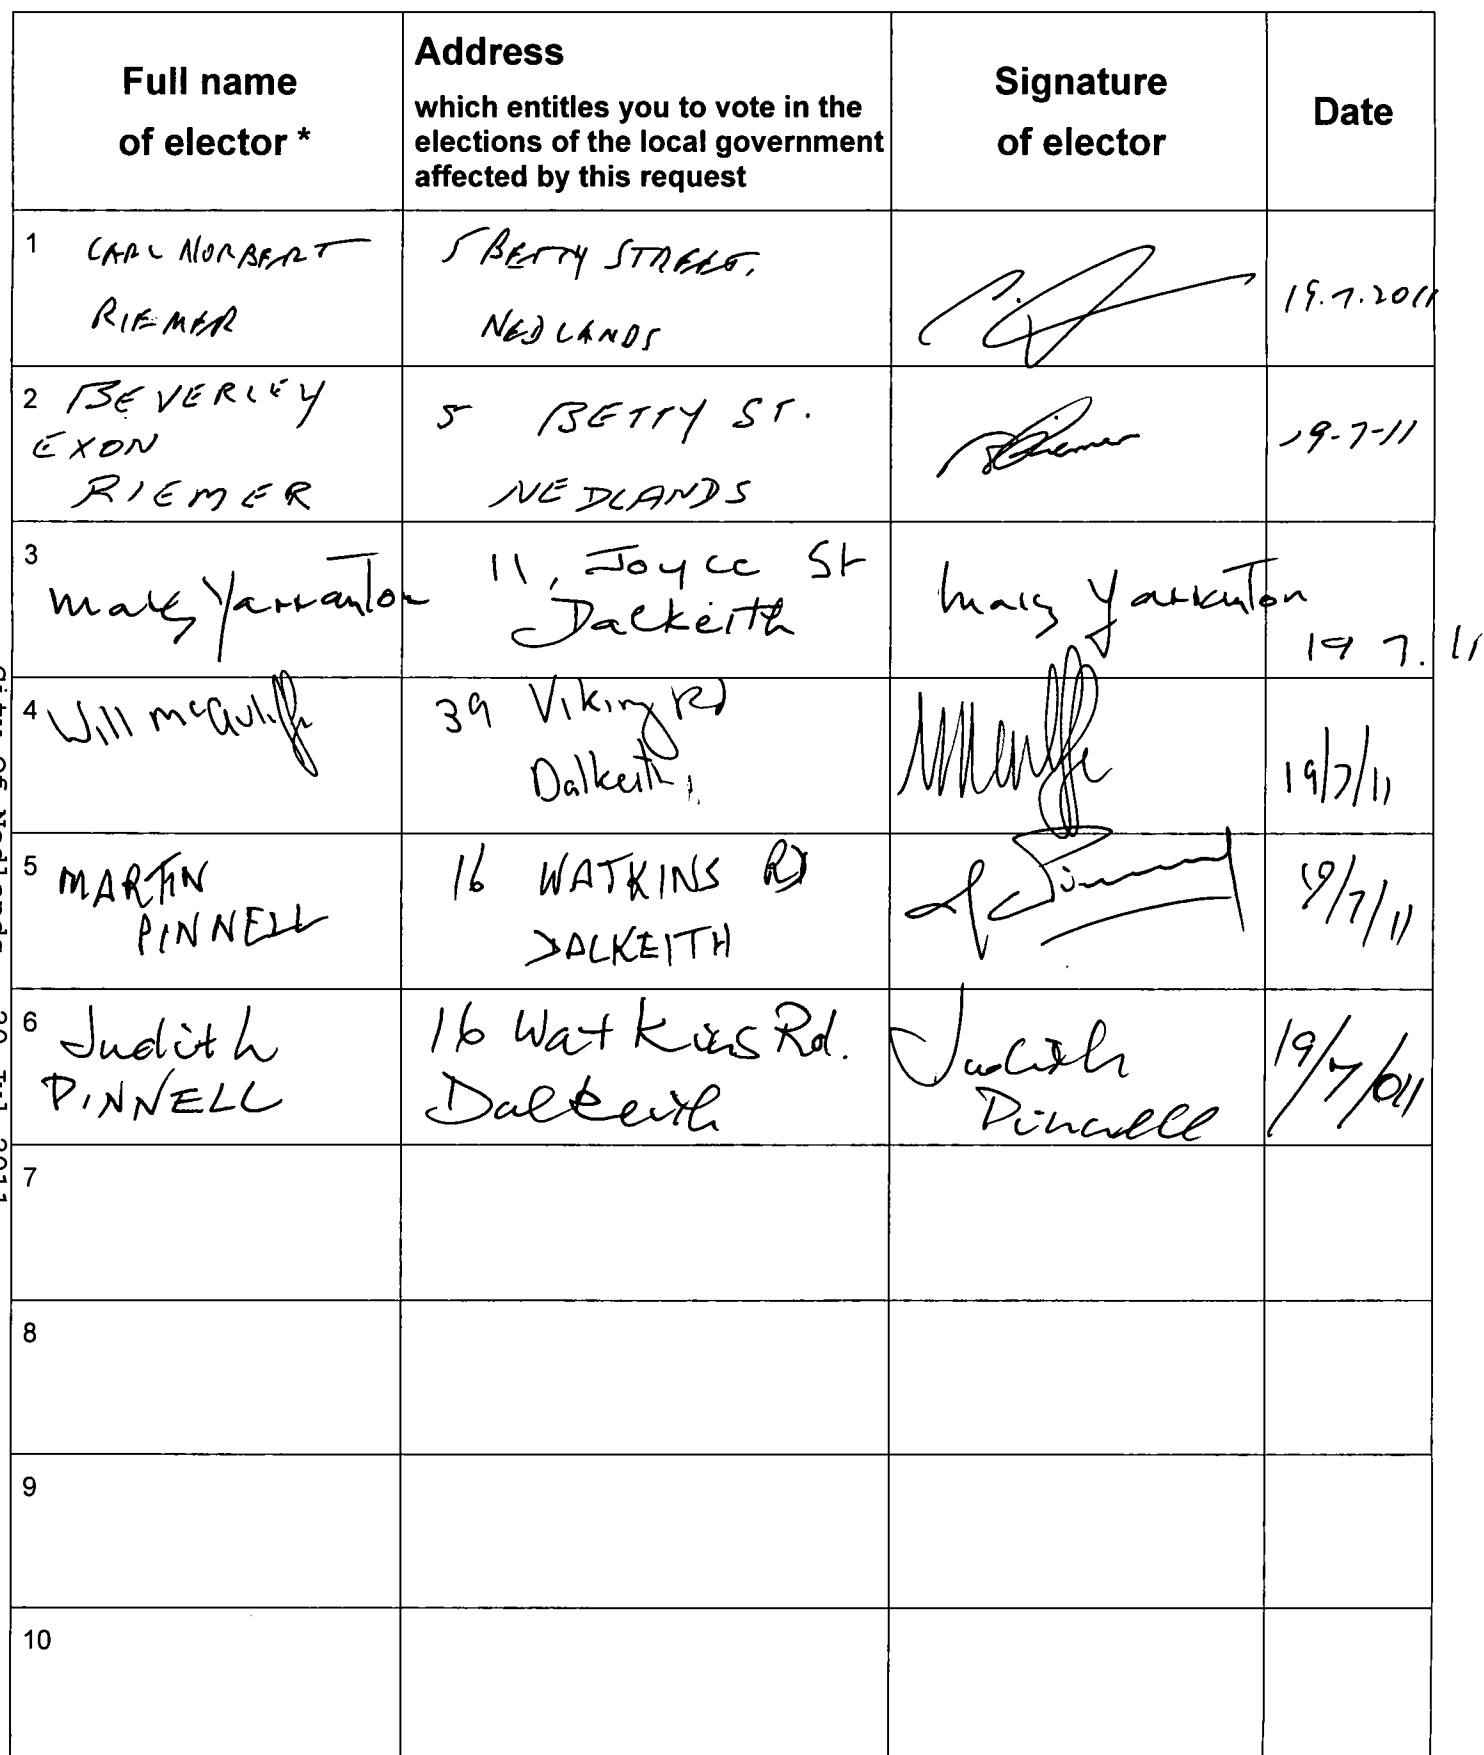 Full name
of elector *
Address
which entitles you to vote in the
elections of the local government
affected by this request
Signature
of elector
Date
1 CARL NORBERT
RIEMER
5 BETTY STREET,
NEDLANDS
19.7.2011
2 BEVERLEY
EXON
RIEMER
5 BETTY ST.
NEDLANDS
Riemer
19-7-11
3
Mary Yarranton
11, Joyce St
Dalkeith
Mary Yarranton
19 7. 11
4 Will McAuliffe
39 Viking Rd
Dalkeith,
19/7/11
5 MARTIN
PINNELL
16 WATKINS RD
DALKEITH
19/7/11
6 Judith
PINNELL
16 Watkins Rd.
Dalkeith
Judith
Pinnell
19/7/011
7
8
9
10